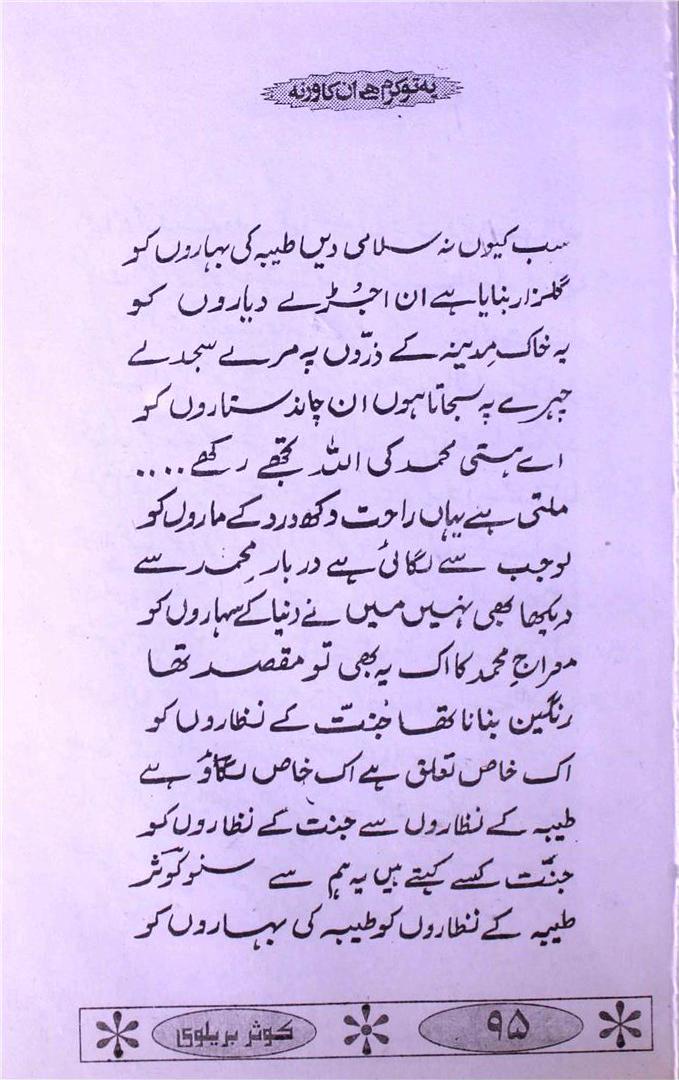 یہ تو کرم ہے ان کا ورنہ
سب کیوں نہ سلامی دیں طیبہ کی بہاروں کو
گلزار بنایا ہے ان اجُڑے دیاروں کو
یہ خاکِ مدینہ کے ذرّوں پہ مرے سجدے
چہرے پہ سجاتا ہوں ان چاند ستاروں کو
اے بستی محمد کی اللہ تجھے رکھے....
ملتی ہے یہاں راحت دکھ درد کے ماروں کو
لو جب سے لگائی ہے دربارِ محمد سے
دیکھا بھی نہیں میں نے دنیا کے سہاروں کو
معراجِ محمد کا اک یہ بھی تو مقصد تھا
رنگین بنانا تھا جنّت کے نظاروں کو
اک خاص تعلق ہے اک خاص لگاؤ ہے
طیبہ کے نظاروں سے جنت کے نظاروں کو
جنّت کسے کہتے ہیں یہ ہم سے سنو کوثرؔ
طیبہ کے نظاروں کو طیبہ کی بہاروں کو
۹۵
کوثر بریلوی